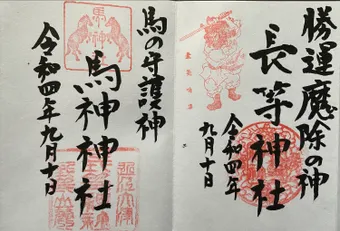 勝運魔除の神
長等神社
令和四年
九月十日
馬の守護神
馬神神社
令和四年九月十日
馬神社